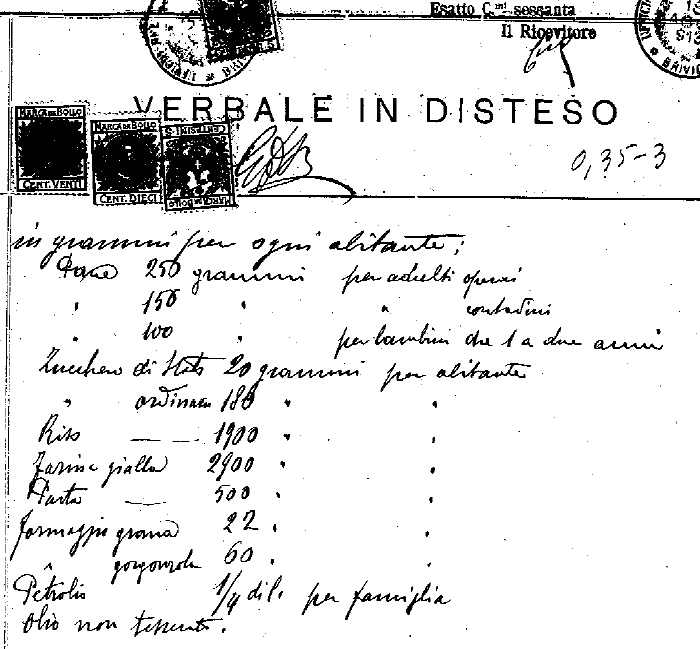 Esatto C.mi sessanta
Il Ricevitore
VERBALE IN DISTESO
MARCA DA BOLLO
CENT. VENTI
MARCA DA BOLLO
CENT. DIECI
MARCA DA BOLLO
0,35-3
in grammi per ogni abitante;
Pane 250 grammi per adulti operai
" 150 " " contadini
" 100 " per bambini da 1 a due anni
Zucchero di Stato 20 grammi per abitante
" ordinario 180 " "
Riso — — 1900 " "
Farina gialla 2900 " "
Pasta — 500 " "
formaggio grana 22 " "
" gorgonzola 60 " "
Petrolio 1/4 di l. per famiglia
Olio non tesserato.